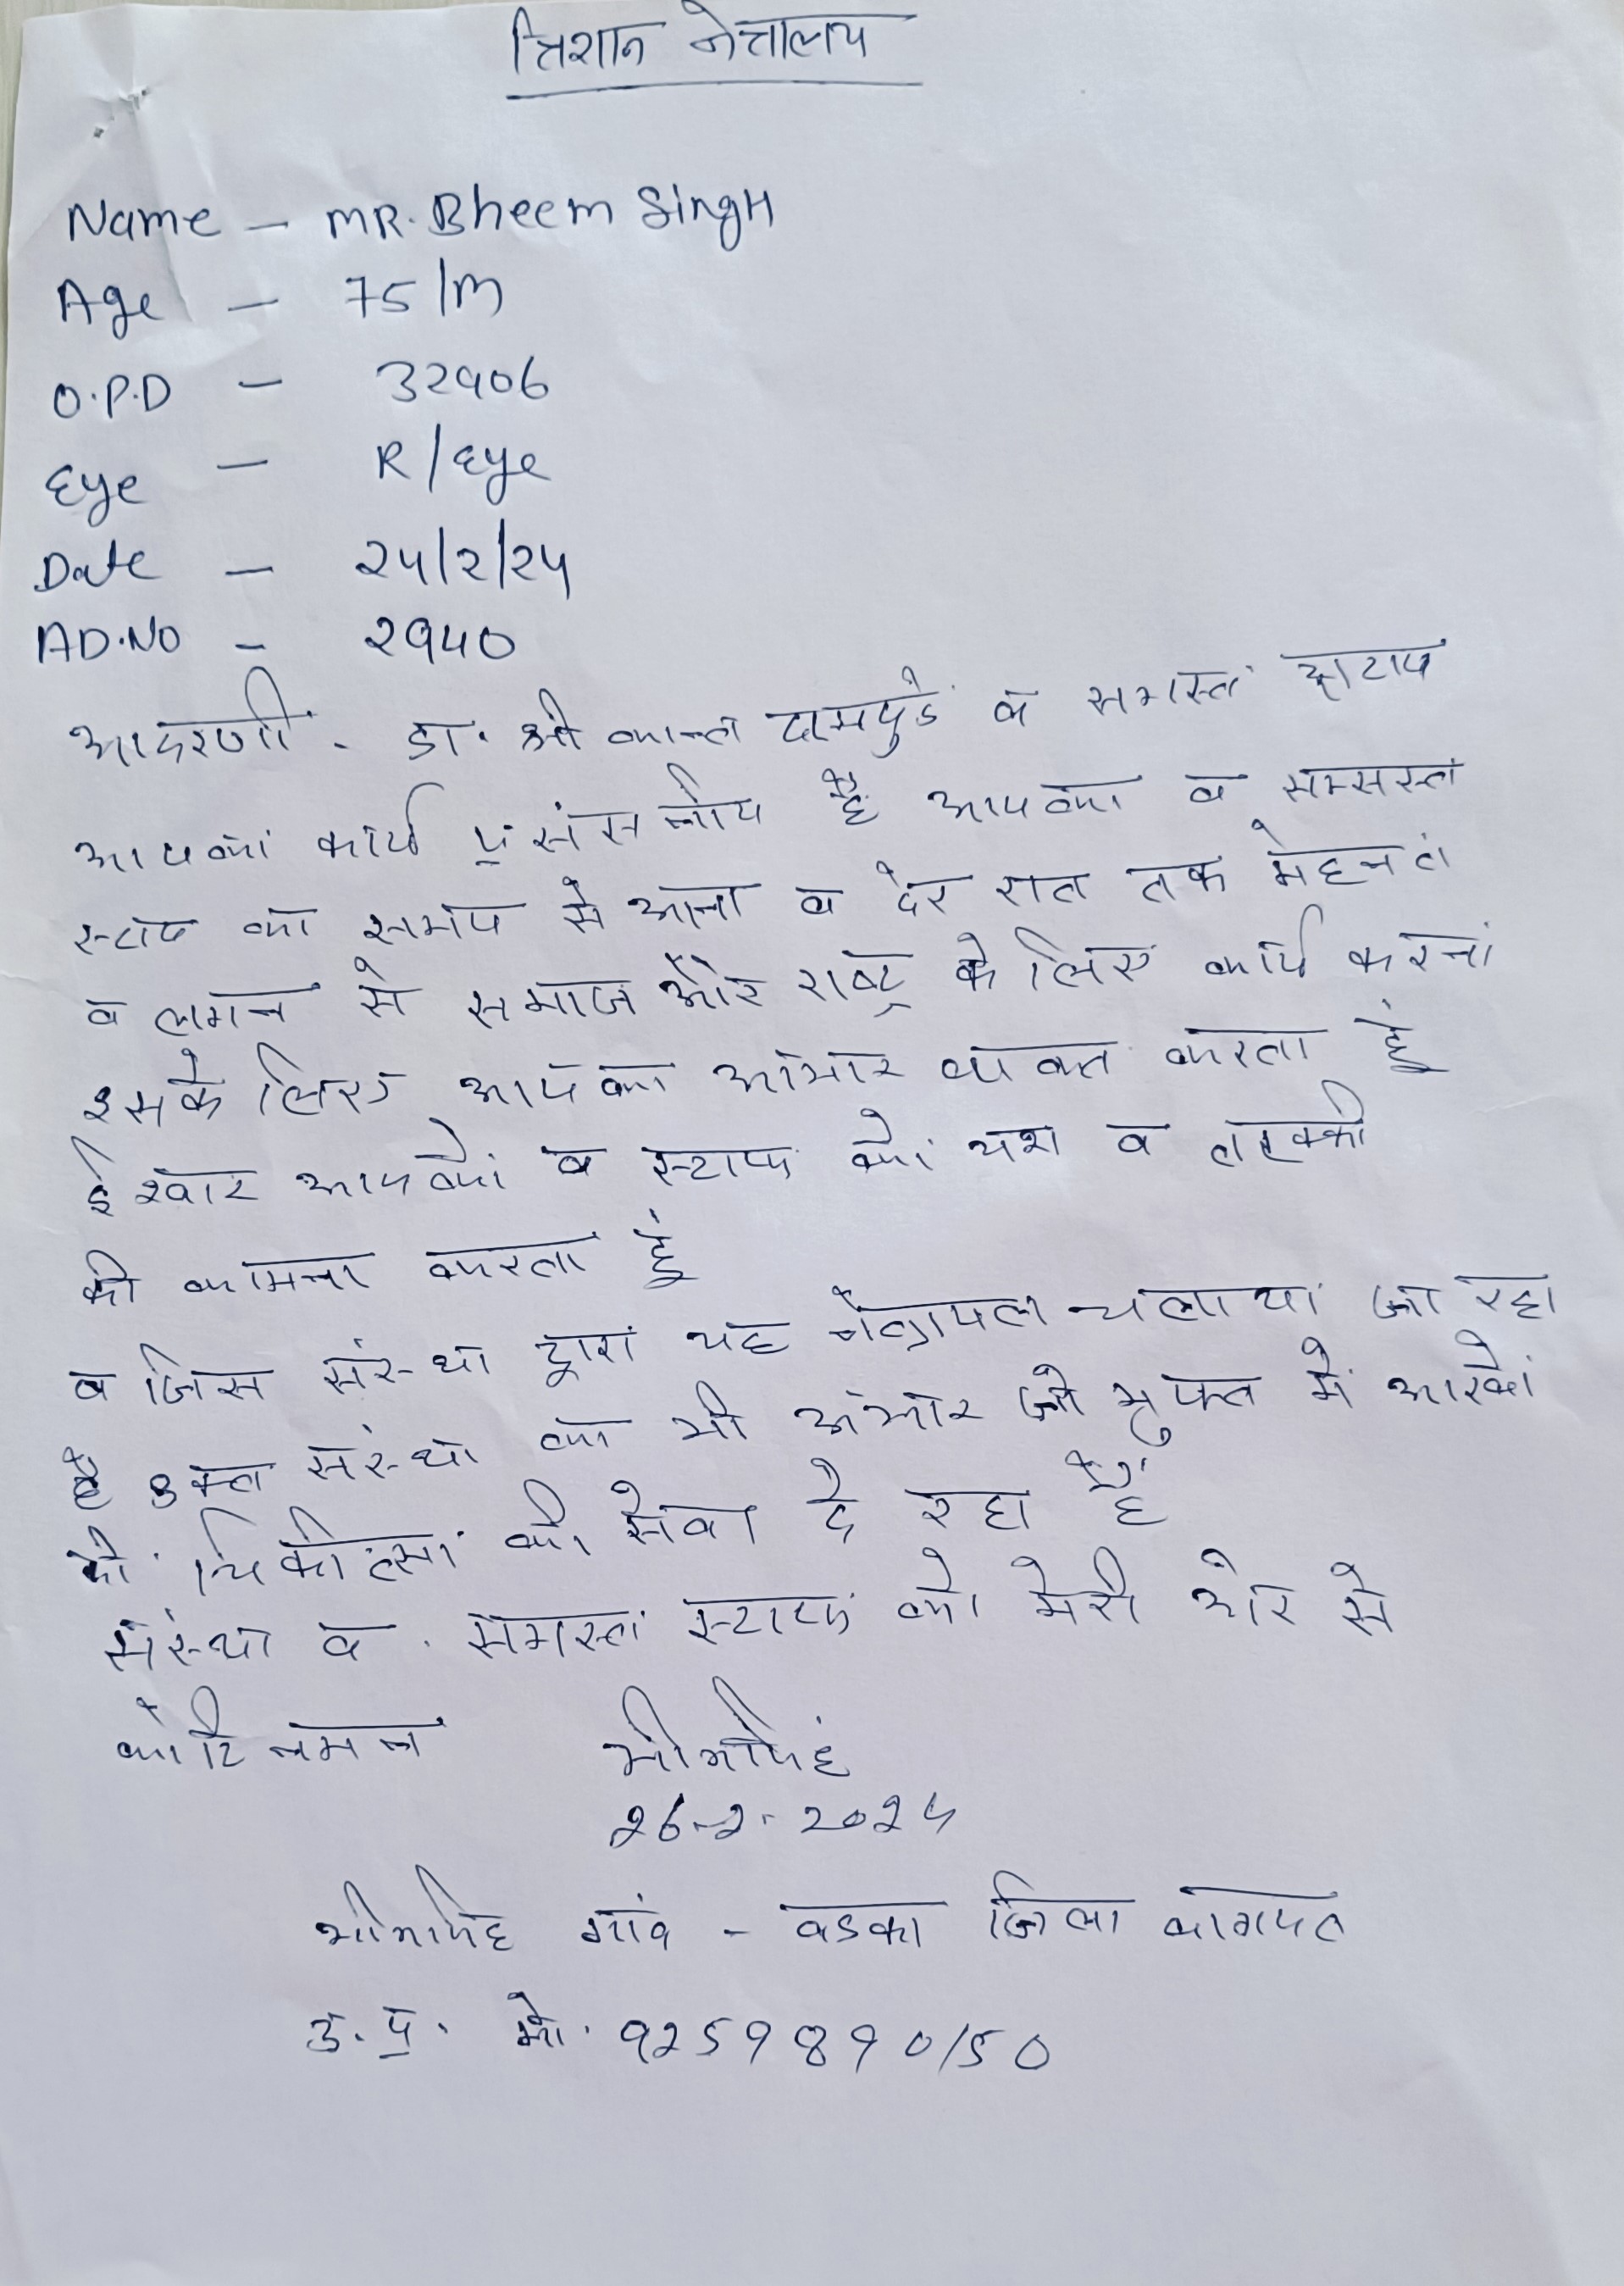 त्रिशान नेत्रालय
Name - MR. Bheem Singh
Age - 75/m
O.P.D - 32906
Eye - R/Eye
Date - 24/2/24
AD.NO - 2940
आदरणी. डा. श्री कान्त व समस्त स्टाप
आपका कार्य प्रसंसनीय है आपका व सम्सस्त
स्टाप का समय से आना व देर रात तक मेहनत
व लगन से समाज और राष्ट्र के लिए कार्य करना
इसके लिए आपका आभार व्यक्त करता हूं
ईश्वार आपको व स्टाफ को यश व तरक्की
की कामना करता हूं
व जिस संस्था द्वारा यह चलाया जा रहा
है उक्त संस्था का भी आभार जो मुफ्त में आखों
की चिकीत्सा की सेवा दे रहा हैं
संस्था व समस्त स्टाफ को मेरी और से
कोटि नमन भीमसिंह
26-2-2024
भीमसिंह गांव - बडका जिला बागपत
उ.प्र. मो. 9259890150